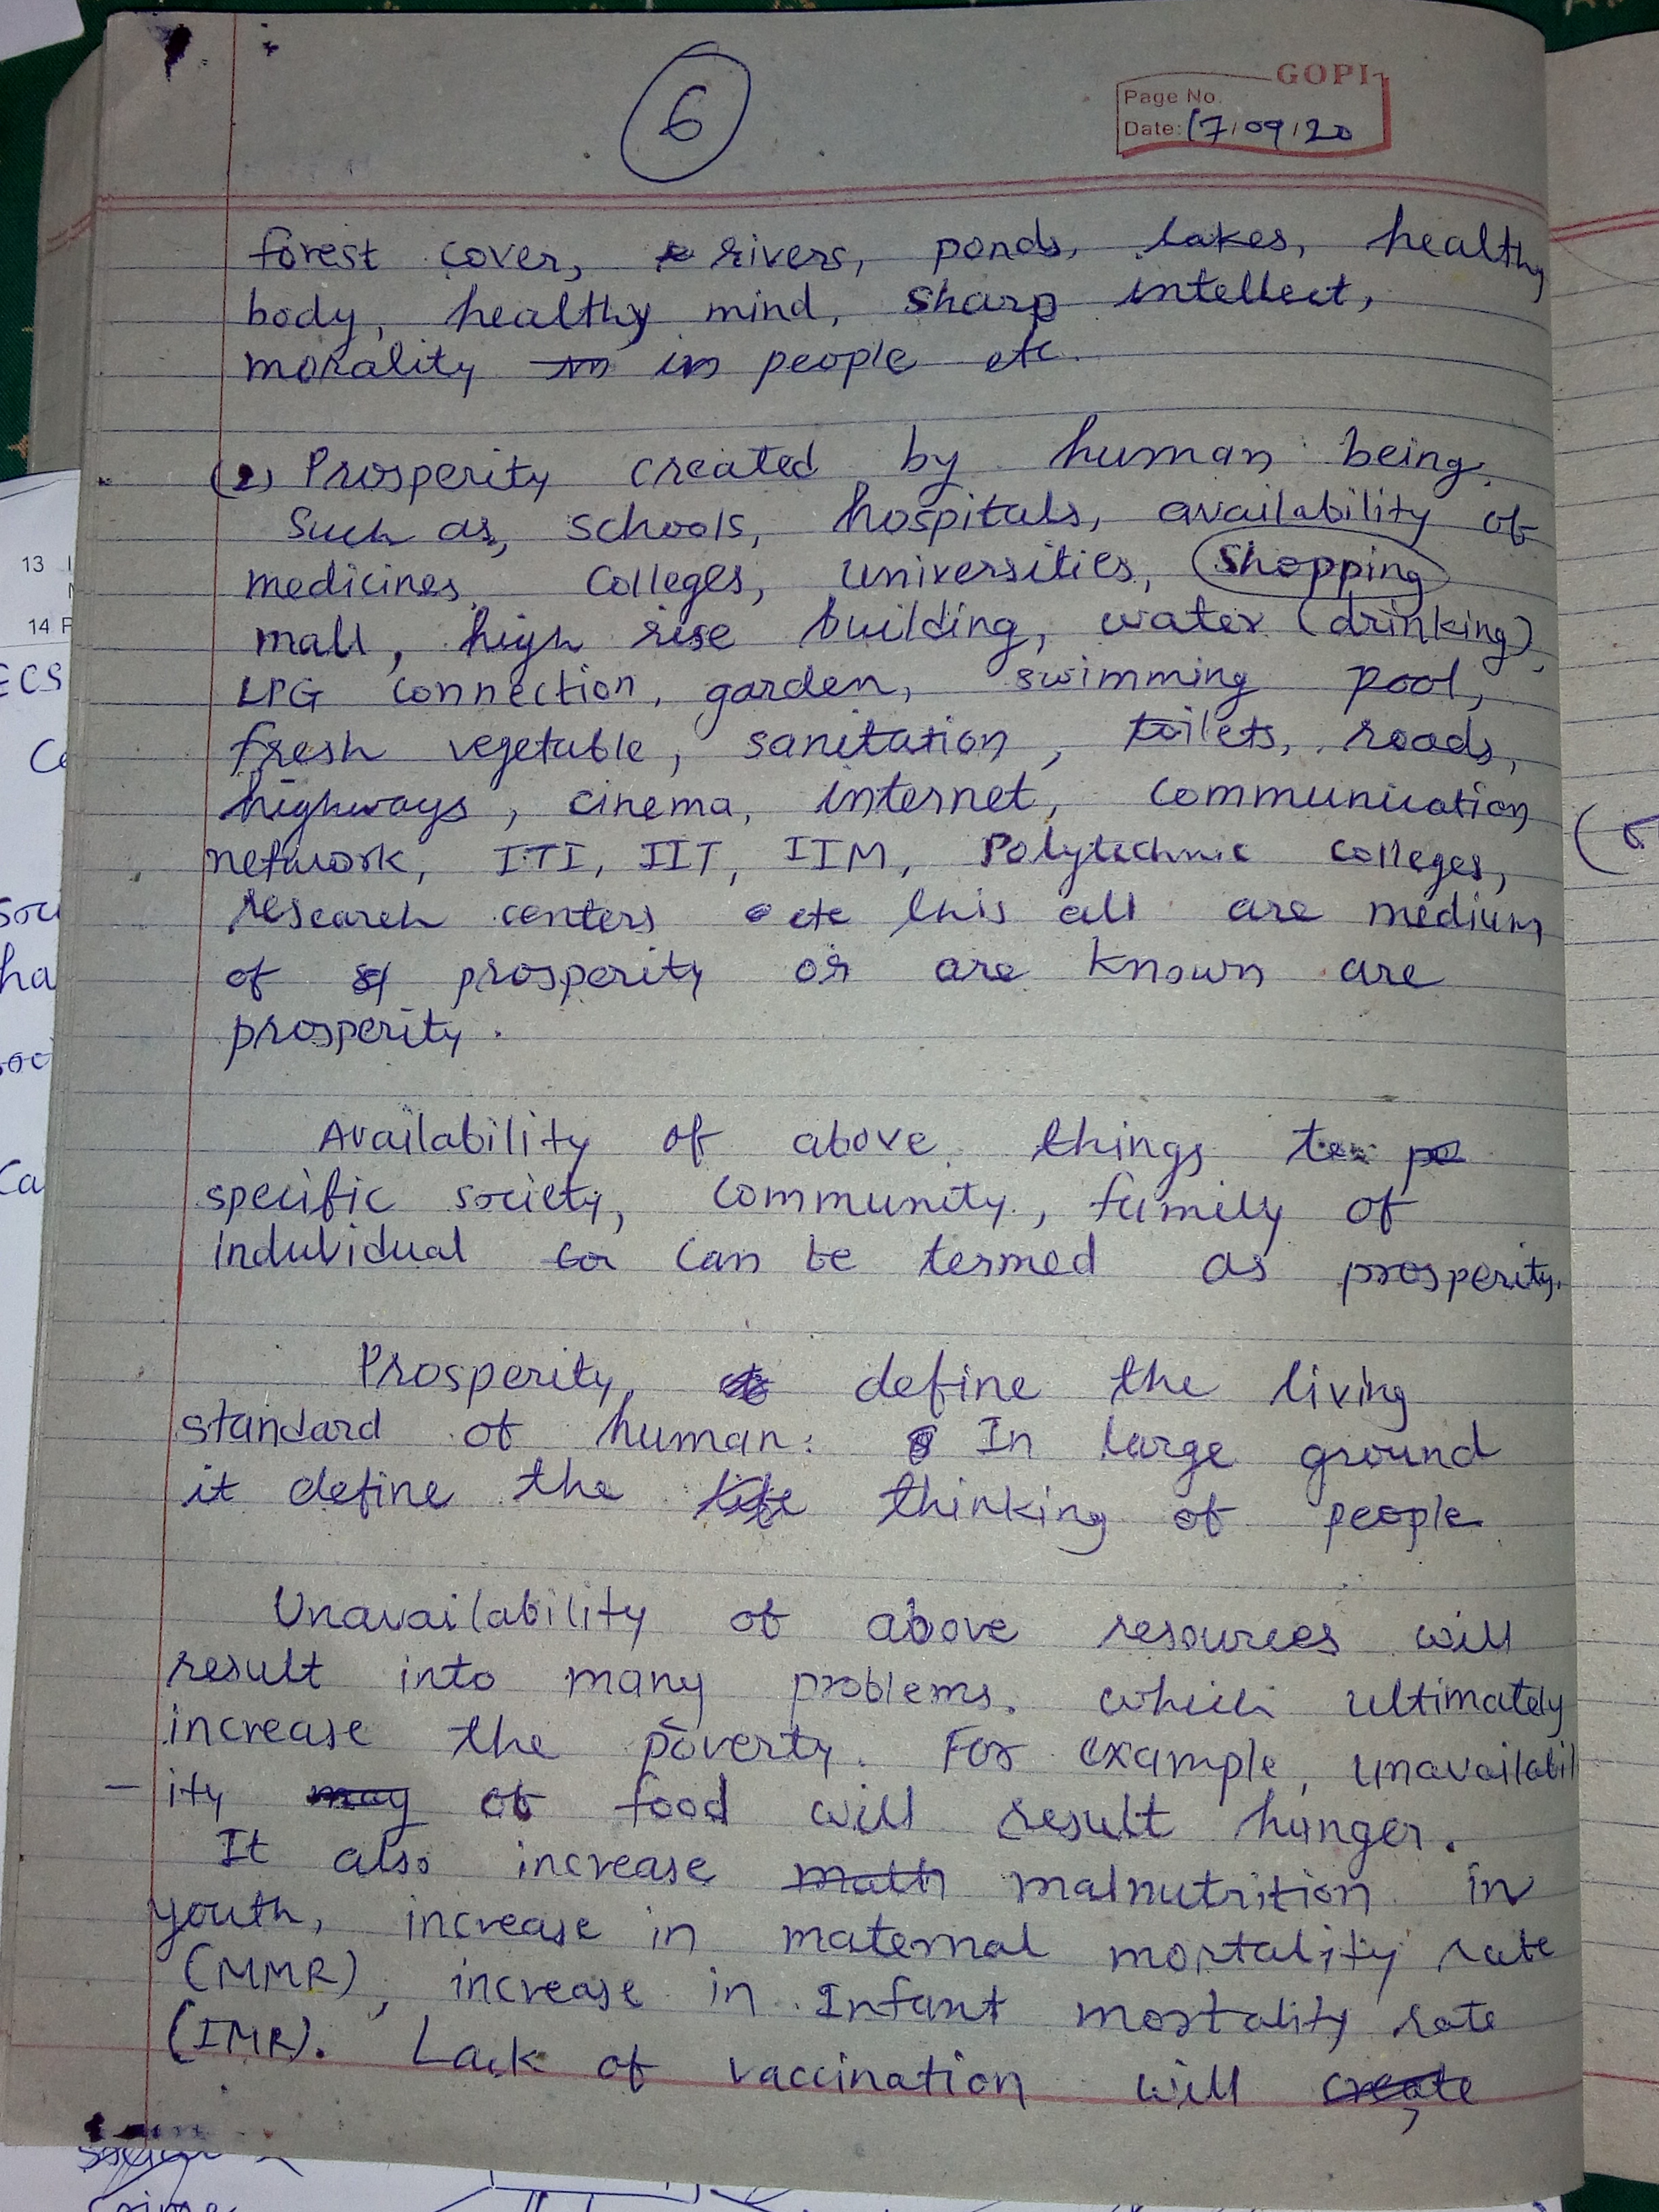 6
GOPI
Page No.
Date: 17/09/20
forest cover, rivers, ponds, lakes, healthy
body, healthy mind, sharp intellect,
morality in people etc.
(2) Prosperity created by human being.
Such as, schools, hospitals, availability of
medicines, colleges, universities, shopping
mall, high rise building, water (drinking),
LPG connection, garden, swimming pool,
fresh vegetable, sanitation, toilets, roads,
highways, cinema, internet, communication
network, ITI, IIT, IIM, Polytechnic colleges,
research centers etc this all are medium
of prosperity or are known are
prosperity.
Availability of above things to
specific society, community, family of
indubidual can be termed as prosperity.
Prosperity define the living
standard of human. In large ground
it define the thinking of people
Unavailability of above resources will
result into many problems. which ultimately
increase the poverty. For example, unavailabil
- ity of food will result hunger.
It also increase malnutrition in
youth, increase in maternal mortality rate
(MMR), increase in Infant mortality rate
(IMR). Lack of vaccination will create
13
14
ECS